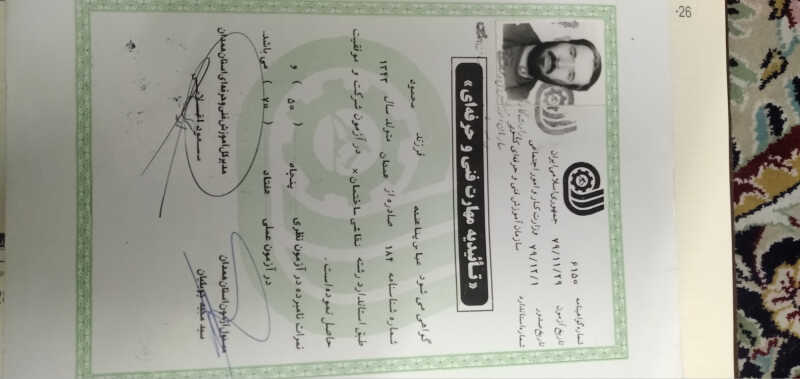 26
جمهوری اسلامی ایران
وزارت کار و امور اجتماعی
سازمان آموزش فنی و حرفه‌ای کشور
شماره گواهینامه ۶۱۵۰
تاریخ آزمون ۷۹/۱۱/۲۹
تاریخ صدور ۷۹/۱۲/۱
شماره استاندارد
«تائیدیه مهارت فنی و حرفه‌ای»
گواهی می شود فرزند محمود
شماره شناسنامه ۱۸۴ صادره از همدان متولد سال ۱۳۴۳
طبق استاندارد رشته نقاشی ساختمان × در آزمون شرکت و موفقیت
حاصل نموده است.
نمرات نامبرده در آزمون نظری پنجاه ( ۵۰ ) و
در آزمون عملی هفتاد ( ۷۰ ) می باشد.
مسئول آزمون استان همدان
سید مجید
مدیر کل آموزش فنی و حرفه‌ای استان همدان
مسعود